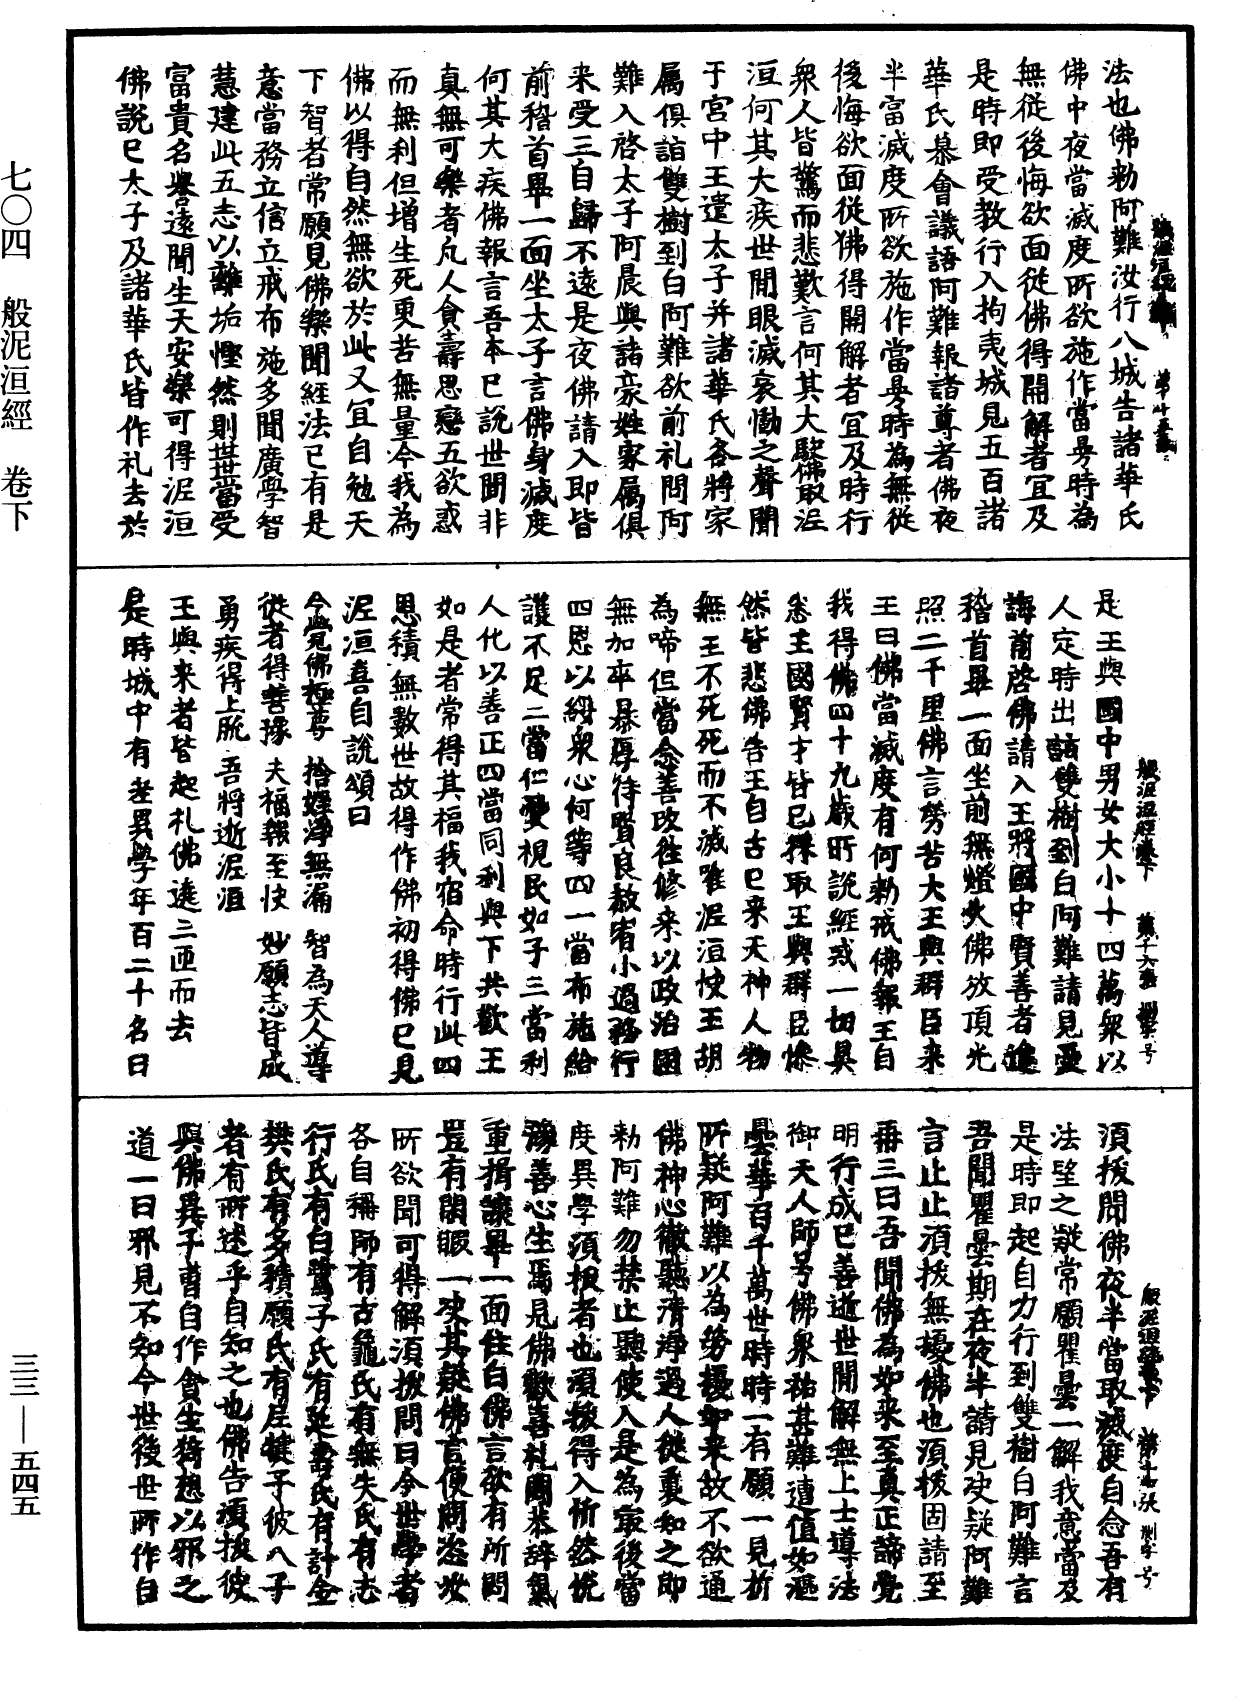 七〇四　般泥洹經　卷下
法也佛勑阿難汝行入城告諸華氏
佛中夜當滅度所欲施作當曼時為
無從後悔欲面從佛得開解者宜及
是時即受教行入拘夷城見五百諸
華氏慕會議語阿難報諸尊者佛夜
半富滅度所欲施作當曼時為無從
後悔欲面從佛得開解者宜及時行
衆人皆驚而悲歎言何其大駛佛取泥
洹何其大疾世間眼滅哀慟之聲聞
于宮中王遣太子并諸華氏各將家
属俱詣雙樹到白阿難欲前礼問阿
難入啓太子阿晨與諸豪姓家属俱
来受三自歸不遠是夜佛請入即皆
前稽首畢一面坐太子言佛身滅度
何其大疾佛報言吾本已說世間非
真無可樂者凡人貪壽思戀五欲惑
而無利但增生死更苦無量今我為
佛以得自然無欲於此又冝自勉天
下智者常願見佛樂聞經法已有是
意當務立信立戒布施多聞廣學智
慧建此五志以離垢慳然則世世當受
富貴名譽遠聞生天安樂可得泥洹
佛說已太子及諸華氏皆作礼去於
是王與國中男女大小十四萬衆以
人定時出詣雙樹到白阿難請見受
誨前啓佛請入王將國中賢善者進
稽首畢一面坐前無燈火佛放頂光
照二千里佛言勞苦大王與群臣来
王曰佛當滅度有何勑戒佛報王自
我得佛四十九歲所說經戒一切具
悉主國賢才皆已採取王與群臣慘
然皆悲佛告王自古已来天神人物
無主不死死而不滅唯泥洹快王胡
為啼但當念善改往修来以政治國
無加卒暴厚待賢良赦宥小過務行
四恩以綱衆心何等四一當布施給
護不足二當仁愛視民如子三當利
人化以善正四當同利與下共歡王
如是者常得其福我宿命時行此四
恩積無數世故得作佛初得佛已見
泥洹喜自說頌曰
今覺佛極尊　捨婬淨無漏　智為天人導
從者得善豫　夫福報至快　妙願志皆成
勇疾得上脫　吾將逝泥洹
王與来者皆起礼佛遶三匝而去
是時城中有老異學年百二十名曰
須拔聞佛夜半當取滅度自念吾有
法望之疑常願瞿曇一解我意當及
是時即起自力行到雙樹白阿難言
吾聞瞿曇期在夜半請見決疑阿難
言止止須拔無擾佛也須拔固請至
再三曰吾聞佛為如来至真正諦覺
明行成已善逝世間解無上士導法
御天人師号佛衆祐甚難遭值如漚
曇華百千萬世時時一有願一見折
所疑阿難以為勞擾如来故不欲通
佛神心徹聽清淨過人從裏知之即
勑阿難勿禁止聽使入是為㝡後當
度異學須拔者也須拔得入忻然悅
豫善心生焉見佛歡喜礼國恭辭氣
重揖讓畢一面住白佛言欲有所問
豈有閑暇一决其疑佛言便問恣汝
所欲聞可得解須拔問曰今世學者
各自稱師有古龜氏有無失氏有志
行氏有白鷺子氏有延壽氏有計金
樊氏有多積願氏有尼揵子彼八子
者有所述乎自知之也佛告須拔彼
與佛異子曹自作貪生猗想以邪之
道一曰邪見不知今世後世所作自
三三—五四五